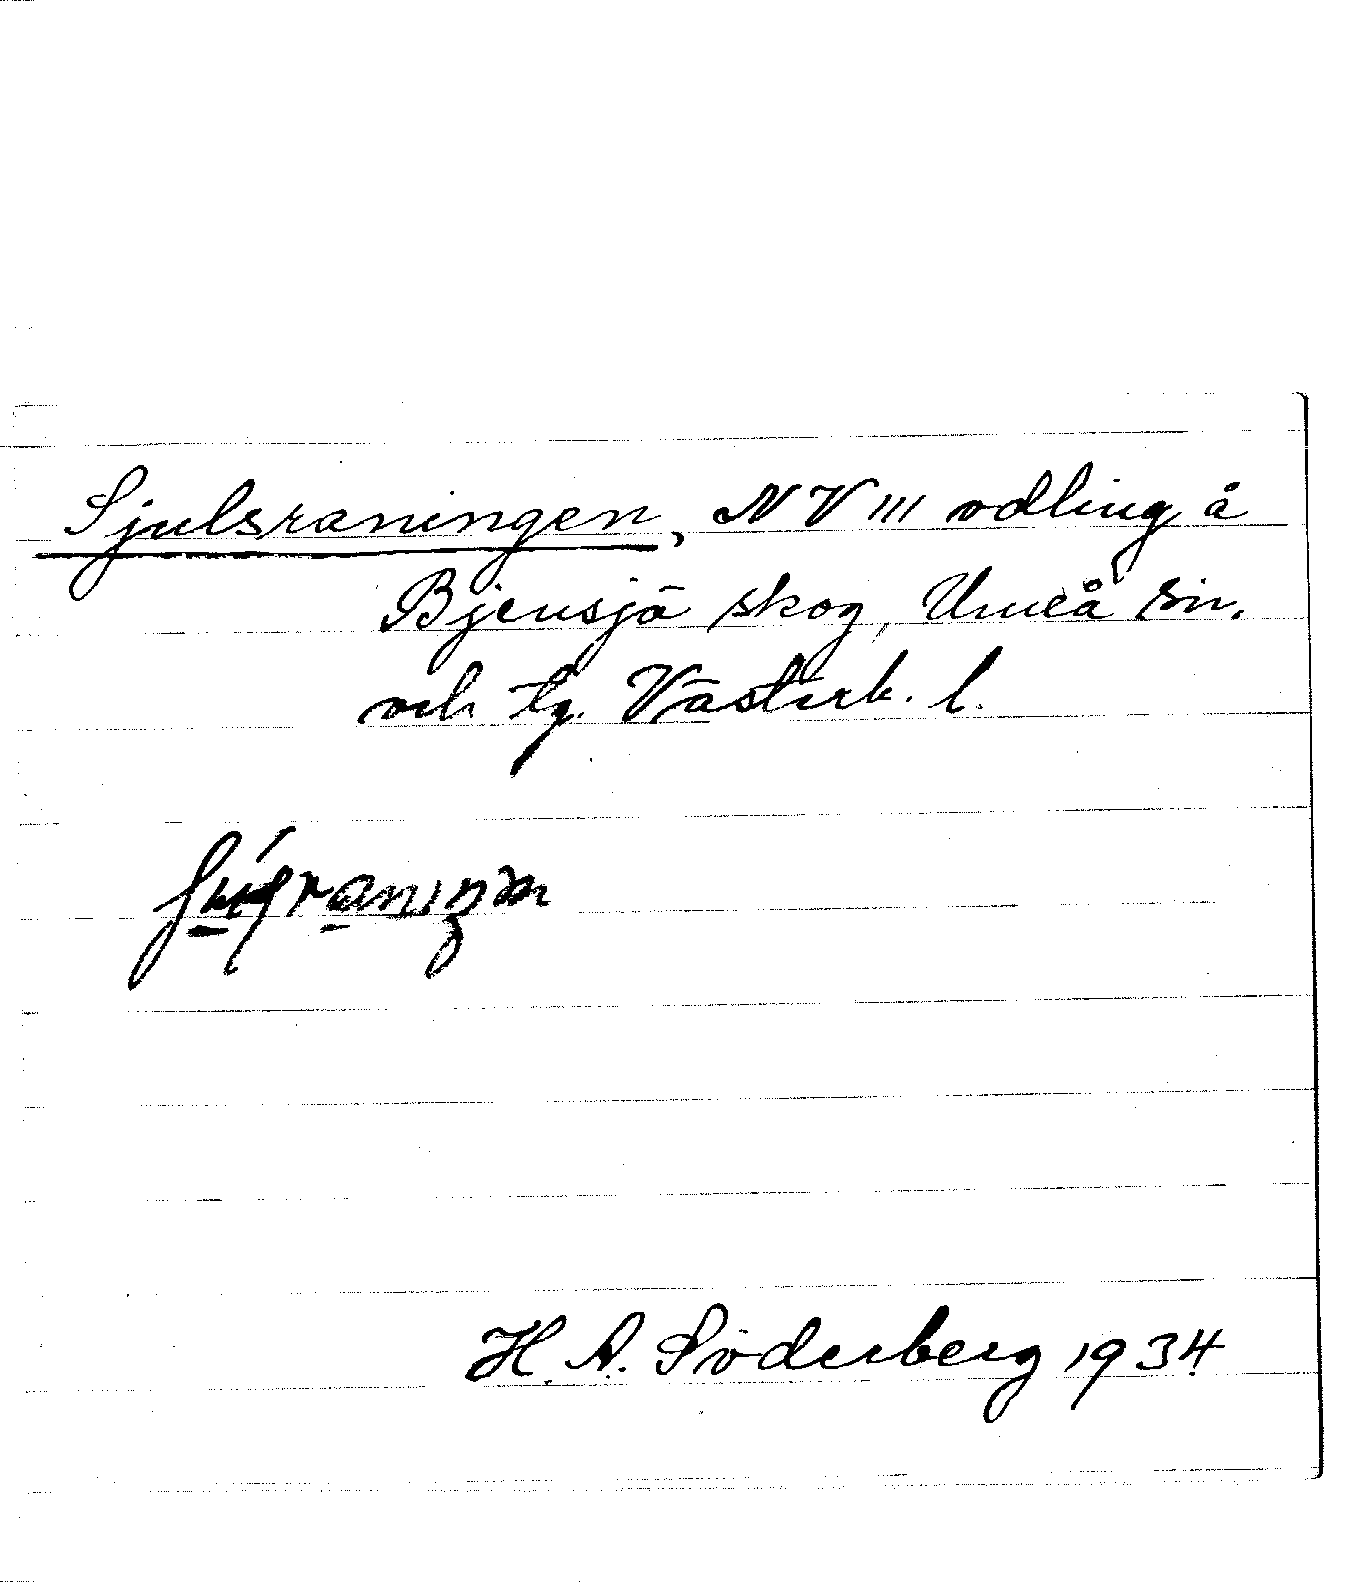 Sjulsraningen, NV III odling å
Bjensjö skog, Umeå sn.
och tg. Västerb. l.
H. A. Söderberg 1934